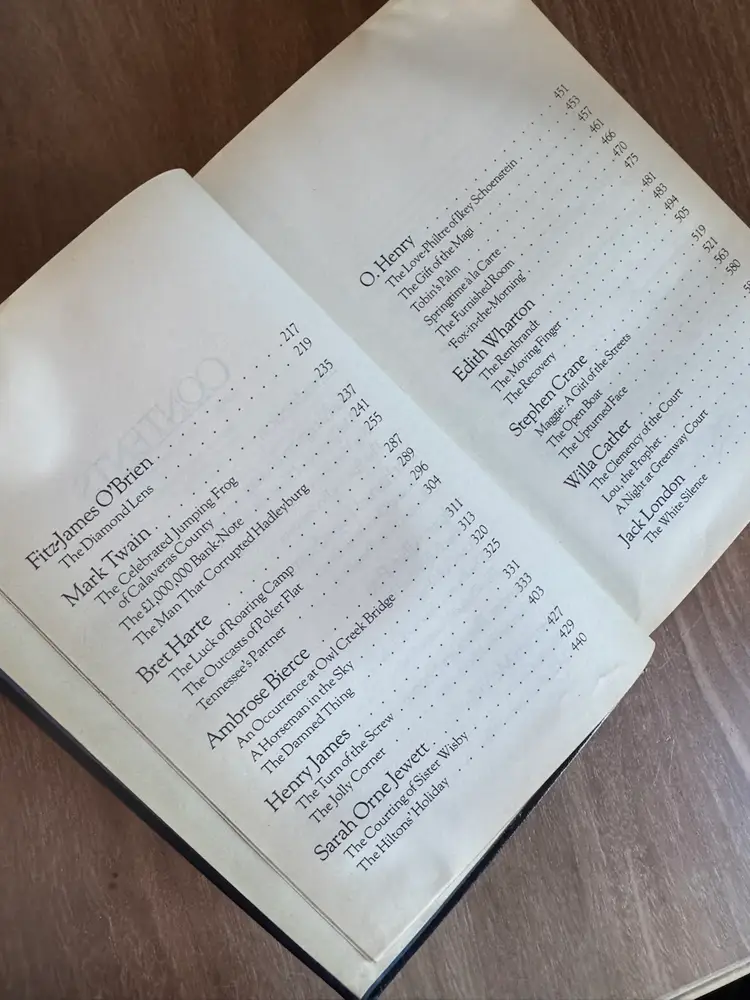 Fitz-James O'Brien 217
The Diamond Lens 219
Mark Twain 235
The Celebrated Jumping Frog
of Calaveras County 237
The £1,000,000 Bank-Note 241
The Man That Corrupted Hadleyburg 255
Bret Harte 287
The Luck of Roaring Camp 289
The Outcasts of Poker Flat 296
Tennessee's Partner 304
Ambrose Bierce 311
An Occurrence at Owl Creek Bridge 313
A Horseman in the Sky 320
The Damned Thing 325
Henry James 331
The Turn of the Screw 333
The Jolly Corner 403
Sarah Orne Jewett 427
The Courting of Sister Wisby 429
The Hiltons' Holiday 440
O. Henry 451
The Love-Philtre of Ikey Schoenstein 453
The Gift of the Magi 457
Tobin's Palm 461
Springtime à la Carte 466
The Furnished Room 470
'Fox-in-the-Morning' 475
Edith Wharton 481
The Rembrandt 483
The Moving Finger 494
The Recovery 505
Stephen Crane 519
Maggie: A Girl of the Streets 521
The Open Boat 563
The Upturned Face 580
Willa Cather
The Clemency of the Court
Lou, the Prophet
A Night at Greenway Court
Jack London
The White Silence